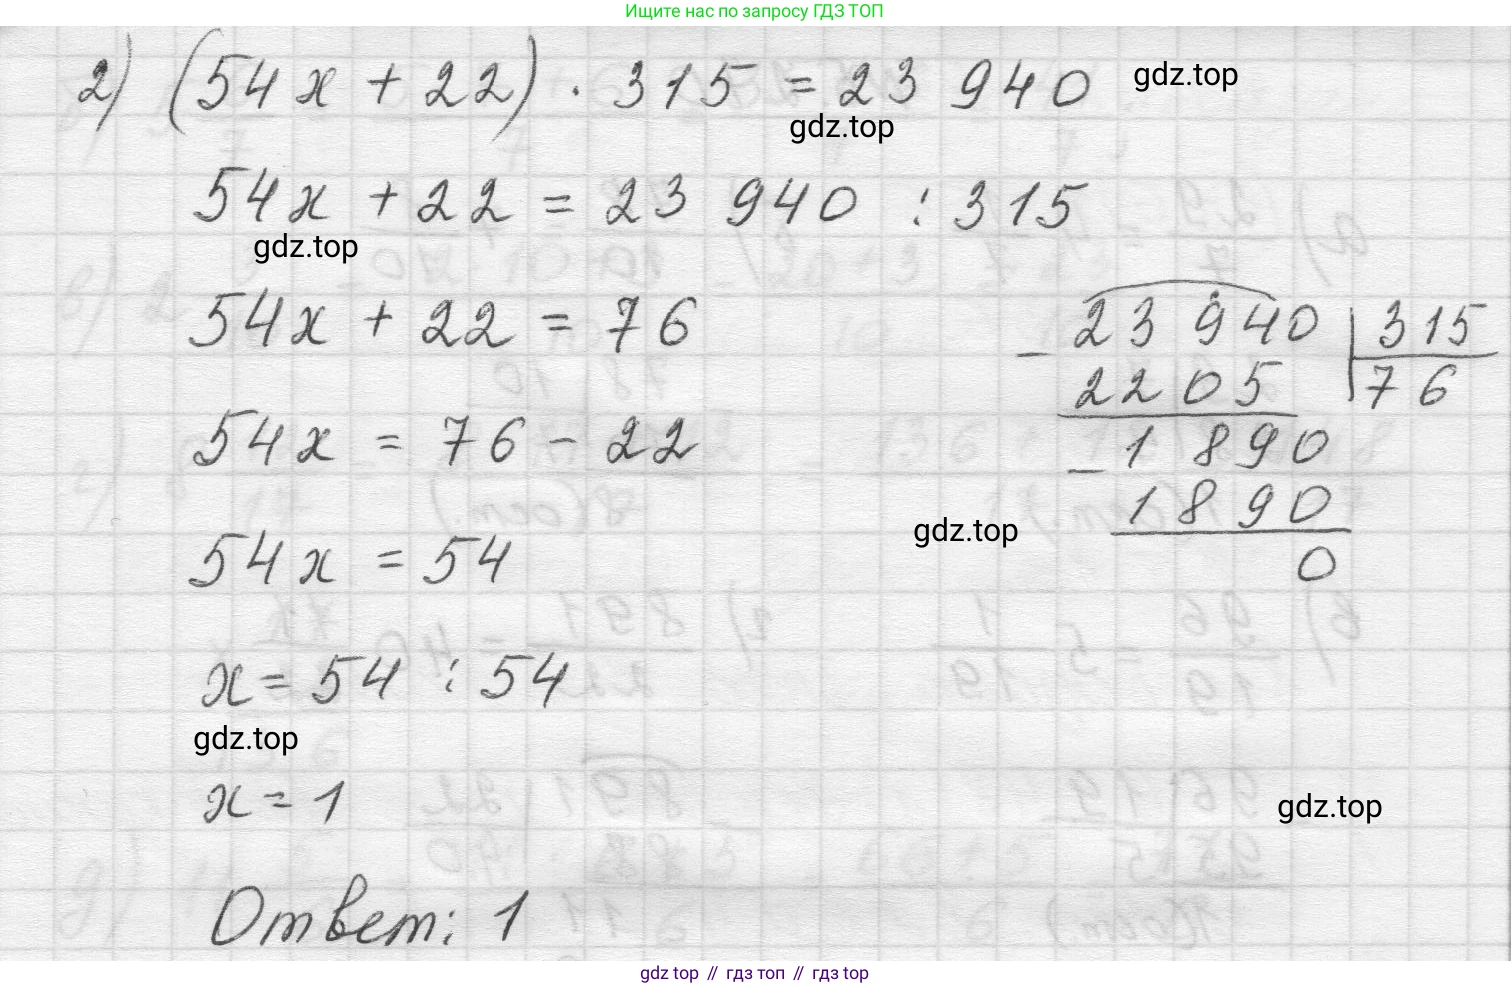 Ищите нас по запросу ГДЗ ТОП
2) (54x + 22) · 315 = 23 940
gdz.top
gdz.top
54x + 22 = 23 940 : 315
gdz.top
54x + 22 = 76
- 23 940 | 315
2205 | 76
54x = 76 - 22
- 1 890
1890
gdz.top
0
54x = 54
x = 54 : 54
gdz.top
x = 1
gdz.top
Ответ: 1
gdz top // гдз топ // гдз top